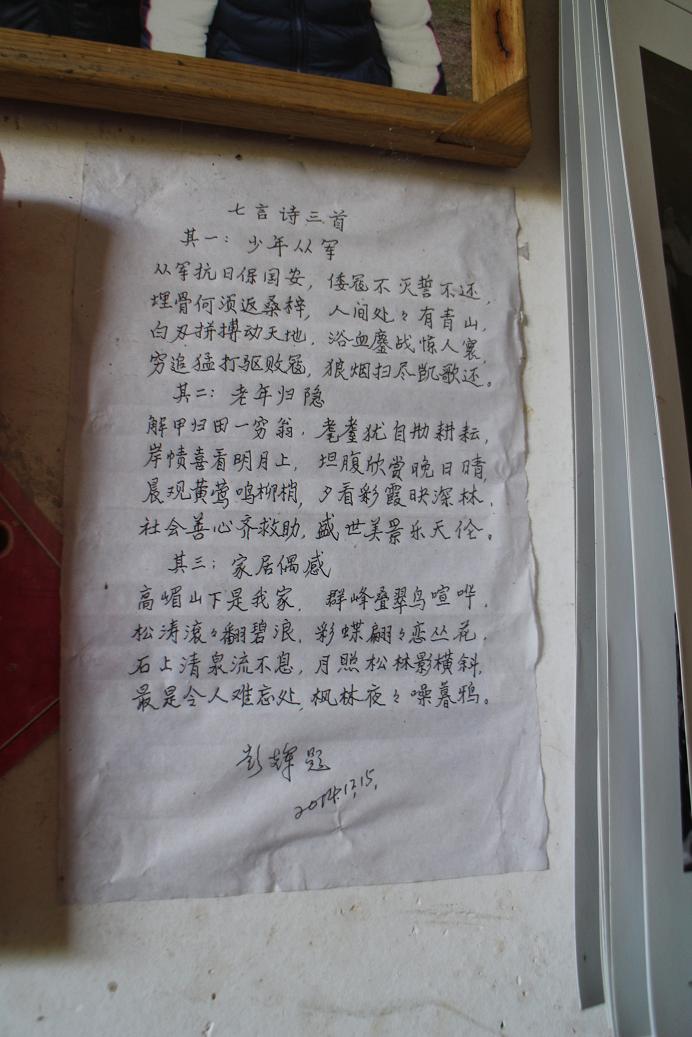 七言诗三首
其一：少年从军
从军抗日保国安，倭冠不灭誓不还，
埋骨何须返桑梓，人间处々有青山，
白刃拼搏动天地，浴血鏖战惊人寰，
穷追猛打驱败冠，狼烟扫尽凯歌还。
其二：老年归隐
解甲归田一穷翁，耄耋犹自劬耕耘，
岸帻喜看明月上，坦腹欣赏晚日晴，
晨观黄莺鸣柳梢，夕看彩霞映深林，
社会善心齐救助，盛世美景乐天伦。
其三：家居偶感
高嵋山下是我家，群峰叠翠鸟喧哗，
松涛滚々翻碧浪，彩蝶翩々恋丛花，
石上清泉流不息，月照松林影横斜，
最是令人难忘处，枫林夜々噪暮鸦。
彭辉题
2014.12.15.